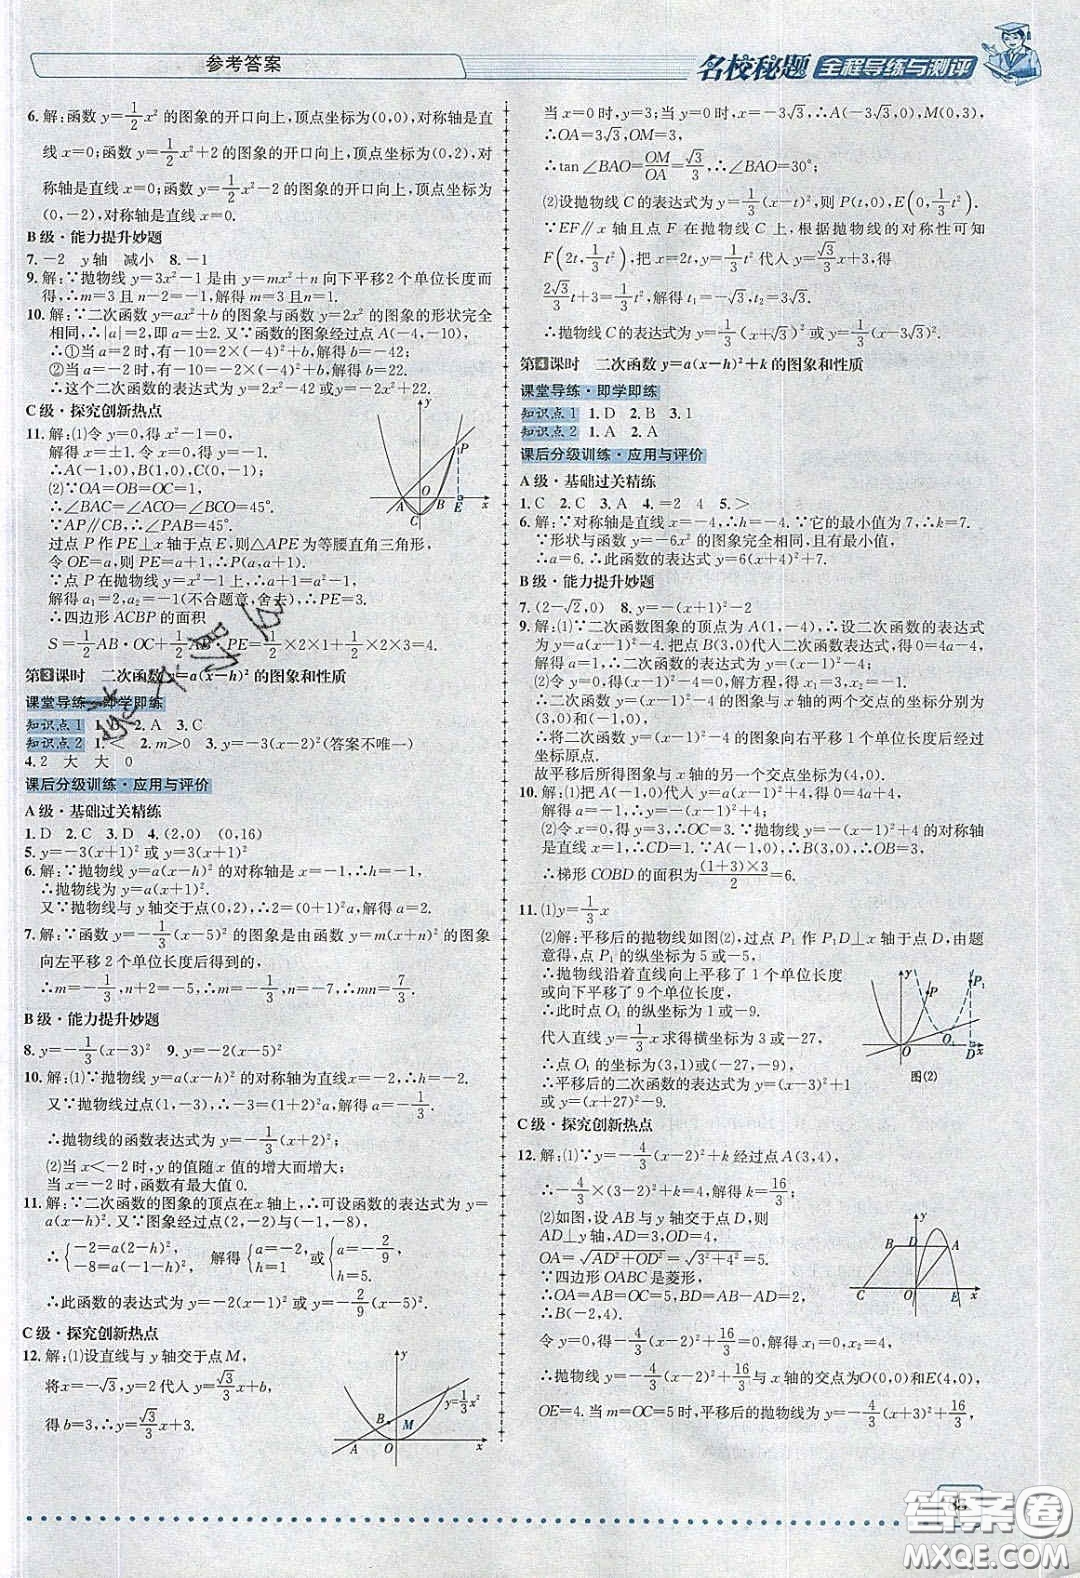 参考答案
名校秘题 全程导练与测评
6. 解:函数 y=1/2x²的图象的开口向上,顶点坐标为(0,0),对称轴是直
线 x=0;函数 y=1/2x²+2 的图象的开口向上,顶点坐标为(0,2),对
称轴是直线 x=0;函数 y=1/2x²-2 的图象的开口向上,顶点坐标为
(0,-2),对称轴是直线 x=0.
B 级·能力提升妙题
7. -2 y轴 减小 8. -1
9. 解:∵抛物线 y=3x²-1 是由 y=mx²+n 向下平移2 个单位长度而
得,∴m=3 且 n-2=-1,解得 m=3 且 n=1.
10. 解:∵二次函数 y=ax²+b 的图象与函数 y=2x² 的图象的形状完全
相同,∴|a|=2,即 a=±2. 又∵函数的图象经过点 A(-4,-10),
∴①当 a=2 时,有-10=2×(-4)²+b,解得 b=-42;
②当 a=-2 时,有-10=-2×(-4)²+b,解得 b=22.
∴这个二次函数的表达式为 y=2x²-42 或 y=-2x²+22.
C 级·探究创新热点
11. 解:(1)令 y=0,得 x²-1=0,
解得 x=±1. 令 x=0,得 y=-1.
∴A(-1,0),B(1,0),C(0,-1).
(2)∵OA=OB=OC=1,
∴∠BAC=∠ACO=∠BCO=45°.
∵AP∥CB,∴∠PAB=45°.
过点 P 作 PE⊥x 轴于点 E,则△APE 为等腰直角三角形,
令 OE=a,则 PE=a+1,∴P(a,a+1).
∵点 P 在抛物线 y=x²-1 上,∴a+1=a²-1.
解得 a₁=2,a₂=-1(不合题意,舍去),∴PE=3.
∴四边形 ACBP 的面积
S=1/2AB·OC+1/2AB·PE=1/2×2×1+1/2×2×3=4.
y P A O B E x C
第3课时 二次函数 y=a(x-h)² 的图象和性质
课堂导练·即学即练
知识点 1 2. A 3. C
知识点 2 1. < 2. m>0 3. y=-3(x-2)²(答案不唯一)
4. 2 大 大 0
课后分级训练·应用与评价
A 级·基础过关精练
1. D 2. C 3. D 4. (2,0) (0,16)
5. y=-3(x+1)² 或 y=3(x+1)²
6. 解:∵抛物线 y=a(x-h)² 的对称轴是 x=-1,∴h=-1,
∴抛物线为 y=a(x+1)².
又∵抛物线与 y 轴交于点(0,2),∴2=(0+1)²a,解得 a=2.
7. 解:∵函数 y=-1/3(x-5)² 的图象是由函数 y=m(x+n)² 的图象
向左平移 2 个单位长度后得到的,
∴m=-1/3,n+2=-5,∴m=-1/3,n=-7,∴mn=7/3.
B 级·能力提升妙题
8. y=-1/3(x-3)² 9. y=-2(x-5)²
10. 解:(1)∵抛物线 y=a(x-h)² 的对称轴为直线x=-2,∴h=-2.
又∵抛物线过点(1,-3),∴-3=(1+2)²a,解得 a=-1/3.
∴抛物线的函数表达式为 y=-1/3(x+2)²;
(2)当 x<-2 时,y 的值随 x 值的增大而增大;
当 x=-2 时,函数有最大值 0.
11. 解:∵二次函数的图象的顶点在x 轴上,∴可设函数的表达式为 y=
a(x-h)². 又∵图象经过点(2,-2)和(-1,-8),
∴{-2=a(2-h)², -8=a(-1-h)², 解得{a=-2, h=1 或{a=-2/9, h=5.
∴此函数的表达式为 y=-2(x-1)² 或 y=-2/9(x-5)².
C 级·探究创新热点
12. 解:(1)设直线与 y 轴交于点 M,
将 x=-√3,y=2 代入 y=√3/3x+b,
得 b=3,∴y=√3/3x+3.
y y=1/3x² B M A O x
当 x=0 时,y=3;当 y=0 时,x=-3√3,∴A(-3√3,0),M(0,3),
∴OA=3√3,OM=3,
∴tan∠BAO=OM/OA=√3/3,∴∠BAO=30°;
(2)设抛物线 C 的表达式为 y=1/3(x-t)²,则 P(t,0),E(0,1/3t²).
∵EF∥x 轴且点 F 在抛物线 C 上,根据抛物线的对称性可知
F(2t,1/3t²),把 x=2t,y=1/3t² 代入 y=√3/3x+3,得
2√3/3t+3=1/3t²,解得 t₁=-√3,t₂=3√3.
∴抛物线 C 的表达式为 y=1/3(x+√3)² 或 y=1/3(x-3√3)².
第4课时 二次函数 y=a(x-h)²+k 的图象和性质
课堂导练·即学即练
知识点 1 1. D 2. B 3. 1
知识点 2 1. A 2. A
课后分级训练·应用与评价
A 级·基础过关精练
1. C 2. C 3. A 4. =2 4 5. >
6. 解:∵对称轴是直线 x=-4,∴h=-4. ∵它的最小值为 7,∴k=7.
∵形状与函数 y=-6x² 的图象完全相同,且有最小值,
∴a=6. ∴此函数的表达式 y=6(x+4)²+7.
B 级·能力提升妙题
7. (2-√2,0) 8. y=(x-1)²-2
9. 解:(1)∵二次函数图象的顶点为 A(1,-4),∴设二次函数的表达式
为 y=a(x-1)²-4. 把点 B(3,0)代入二次函数的表达式,得 0=4a-4,
解得 a=1. ∴二次函数的表达式为 y=(x-1)²-4;
(2)令 y=0,得(x-1)²-4=0,解得 x₁=3,x₂=-1.
∴二次函数 y=(x-1)²-4 的图象与 x 轴的两个交点的坐标分别为
(3,0)和(-1,0),
∴将二次函数 y=(x-1)²-4 的图象向右平移 1 个单位长度后经过
坐标原点.
故平移后所得图象与 x 轴的另一个交点的坐标为(4,0).
10. 解:(1)把 A(-1,0)代入 y=a(x-1)²+4,得 0=4a+4,
解得 a=-1,∴y=-(x-1)²+4;
(2)令 x=0,得 y=3,∴OC=3. ∵抛物线 y=-(x-1)²+4 的对称轴
是直线 x=1,∴CD=1. ∵A(-1,0),∴B(3,0),∴OB=3.
∴梯形 COBD 的面积为(1+3)×3/2=6.
11. (1)y=1/3x
(2)解:平移后的抛物线如图(2),过点 P₁ 作 P₁D⊥x 轴于点 D,由题
意得,点 P₁ 的纵坐标为 5 或-5,
∴抛物线沿着直线向上平移了 1 个单位长度
或向下平移了 9 个单位长度,
∴此时点 O₁ 的纵坐标为 1 或-9.
代入直线 y=1/3x 求得横坐标为 3 或-27.
∴点 O₁ 的坐标为(3,1)或(-27,-9).
∴平移后的二次函数的表达式为 y=(x-3)²+1
或 y=(x+27)²-9.
y P P₁ O O₁ D x
图(2)
C 级·探究创新热点
12. 解:(1)∵y=-4/3(x-2)²+k 经过点 A(3,4),
∴-4/3×(3-2)²+k=4,解得 k=16/3;
(2)如图,设 AB 与 y 轴交于点 D,则
AD⊥y 轴,AD=3,OD=4,
OA=√AD²+OD²=√3²+4²=5.
∵四边形 OABC 是菱形,
∴OA=AB=OC=5,BD=AB-AD=2,
∴B(-2,4).
令 y=0,得-4/3(x-2)²+16/3=0,解得 x₁=0,x₂=4.
∴抛物线 y=-4/3(x-2)²+16/3与 x 轴的交点为O(0,0)和 E(4,0),
OE=4. 当 m=OC=5 时,平移后的抛物线为 y=-4/3(x+3)²+16/3,
y B D A C O E x
答案圈
MXQE.COM